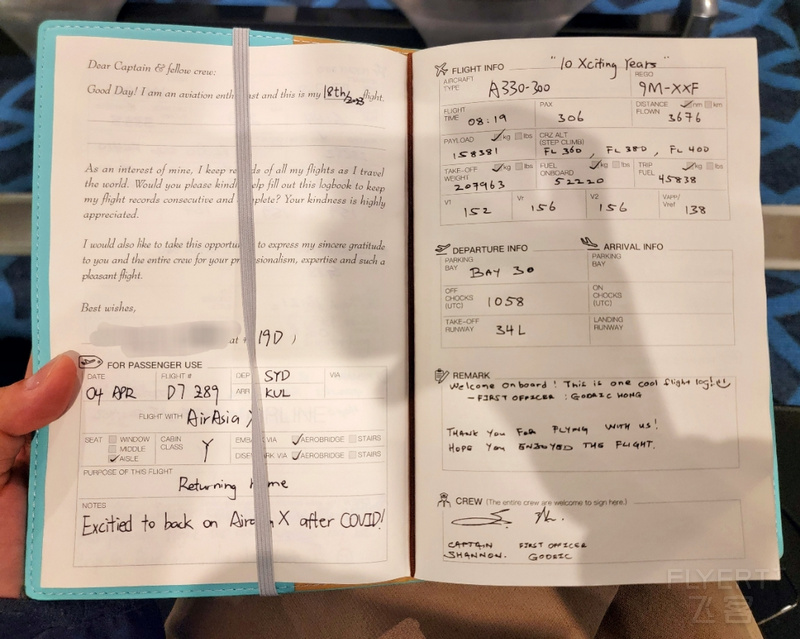 Dear Captain & fellow crew:
Good Day! I am an aviation enth ast and this is my 18th/2023 flight.
As an interest of mine, I keep re ds of all my flights as I travel
the world. Would you please kind elp fill out this logbook to keep
my flight records consecutive and plete? Your kindness is highly
appreciated.
I would also like to take this opportu to express my sincere gratitude
to you and the entire crew for your pr sionalism, expertise and such a
pleasant flight.
Best wishes,
at 19D )
FOR PASSENGER USE
DATE FLIGHT # DEP SYD VIA
04 APR D7 289 ARR KUL
FLIGHT WITH AirAsia X
SEAT WINDOW CABIN EMB VIA ✓AEROBRIDGE STAIRS
MIDDLE CLASS Y
✓AISLE DISE RK VIA ✓AEROBRIDGE STAIRS
PURPOSE OF THIS FLIGHT
Returning me
NOTES
Excitied to back on Aira X after COVID!
FLIGHT INFO "10 Xciting Years"
AIRCRAFT TYPE A330-300 REGO 9M-XXF
FLIGHT TIME 08:19 PAX 306 DISTANCE FLOWN ✓nm km 3676
PAYLOAD ✓kg lbs 158381 CRZ ALT (STEP CLIMB) FL 360, FL 380, FL 400
TAKE-OFF WEIGHT ✓kg lbs 207963 FUEL ONBOARD ✓kg lbs 52220 TRIP FUEL ✓kg lbs 45838
V1 152 Vr 156 V2 156 VAPP/Vref 138
DEPARTURE INFO ARRIVAL INFO
PARKING BAY BAY 30 PARKING BAY
OFF CHOCKS (UTC) 1058 ON CHOCKS (UTC)
TAKE-OFF RUNWAY 34L LANDING RUNWAY
REMARK
Welcome onboard! This is one cool flight log!
- FIRST OFFICER : GODRIC HONG
THANK YOU FOR FLYING WITH US!
HOPE YOU ENJOYED THE FLIGHT.
CREW (The entire crew are welcome to sign here.)
CAPTAIN FIRST OFFICER
SHANNON. GODRIC
FLYERT
飞客